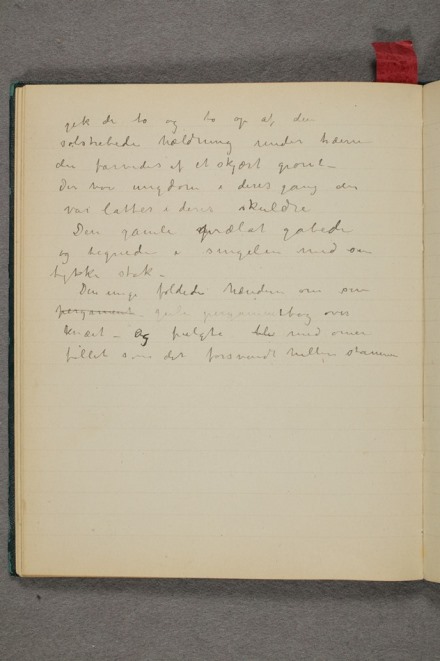 gik de to og to op ad den
solstribede hældning under træerne
der farvedes af et skjært grønt –
Der var ungdom i deres gang der
var latter i deres skuldre
Den gamle prælat gabede
og tegnede i singelen med sin
tykke stok –
Den unge foldede hænderne om sin
pergament gule pergamentbog over
knæet – og fulgte med
fillet som det forsvandt mellem stammerne